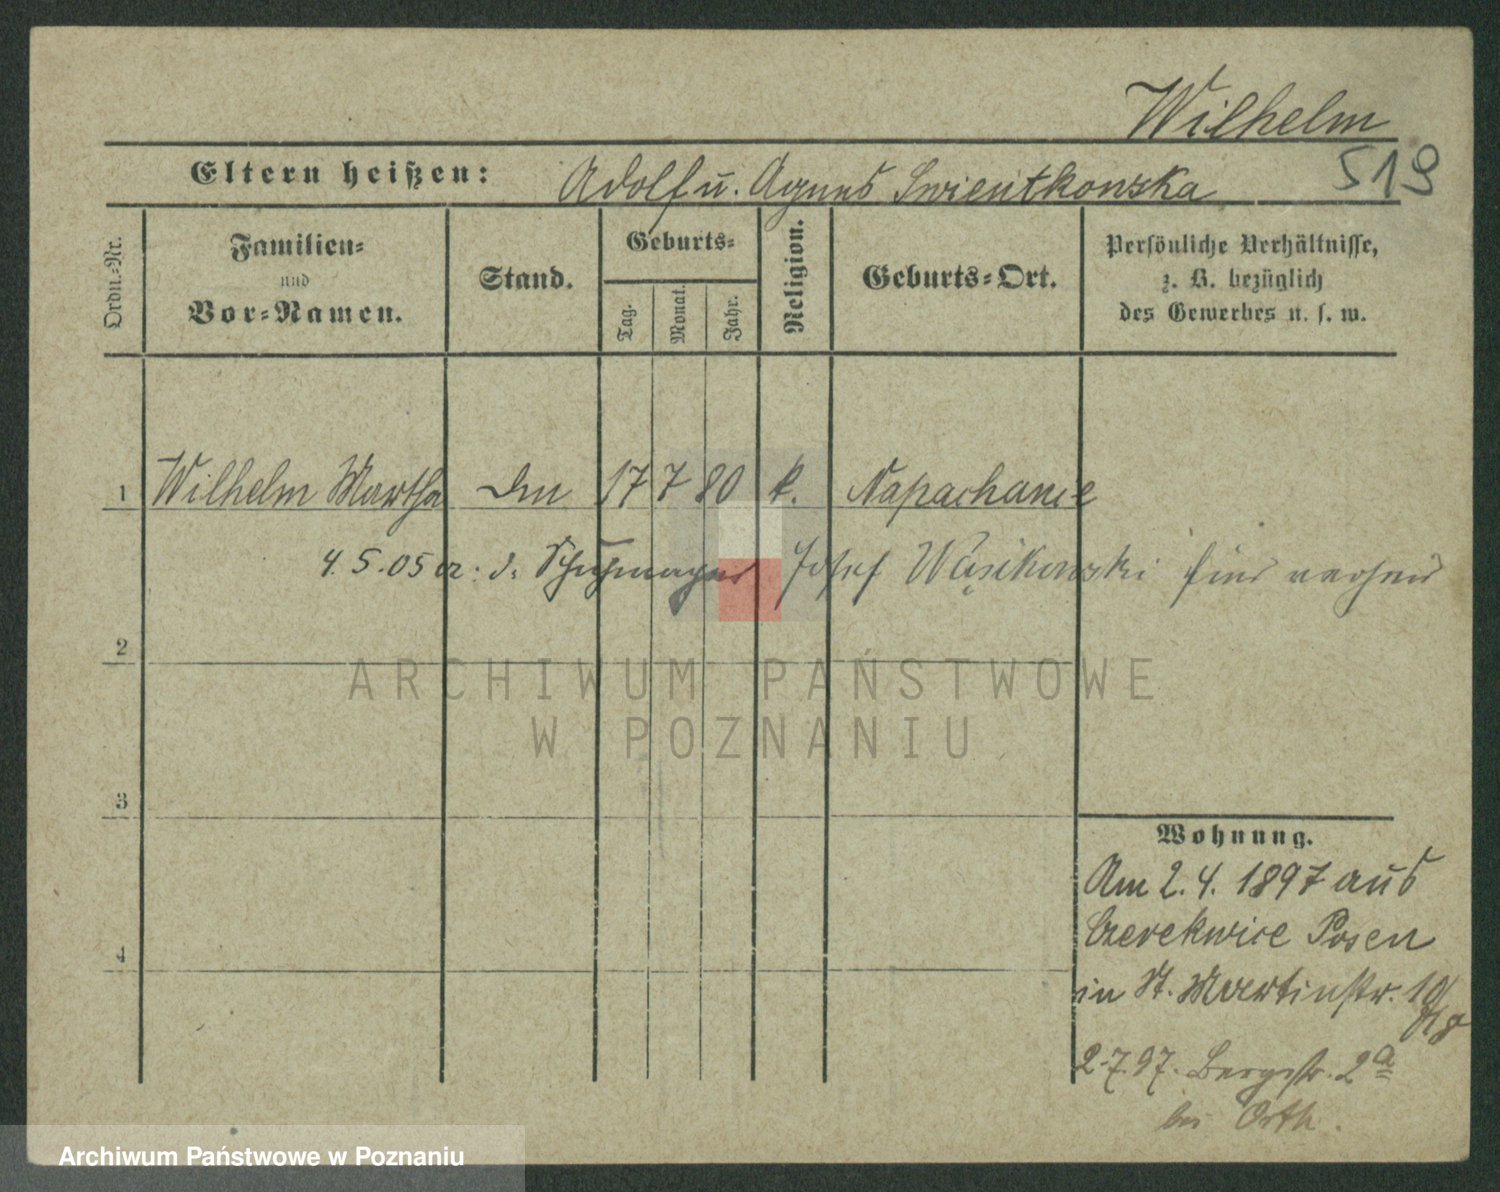 Wilhelm
519
Eltern heißen: Adolf u. Agnes Swientkowska
Ordn.-Nr.
Familien-
und
Vor-Namen.
Stand.
Geburts-
Tag.
Monat.
Jahr.
Religion.
Geburts-Ort.
Persönliche Verhältnisse,
z. B. bezüglich
des Gewerbes u. s. w.
1 Wilhelm Martha 17 7 80 k. Napachanie
4. 5. 05 d. Schuhmacher Josef Wąsikowski hier verh
2
3
4
Wohnung.
Am 2. 4. 1897 aus
Cerekwice Posen
in St. Martinstr. 10
2.7.97. Bergstr. 2a
bei Orth.
ARCHIWUM PAŃSTWOWE
W POZNANIU
Archiwum Państwowe w Poznaniu